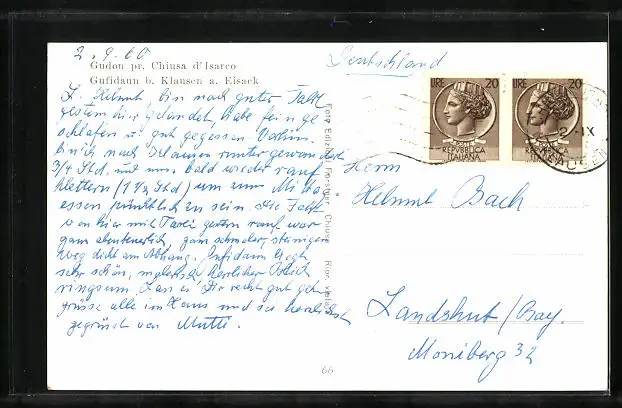 2.9.60
Gudon pr. Chiusa d'Isarco
Gufidaun b. Klausen a. Eisack
L. Helmut bin nach guter Fahrt
gestern hier gelandet, habe fein ge
schlafen u. gut gegessen. Vorhin
bin ich nach Klausen runter gewandert
3/4 Std. und muss bald wieder rauf
klettern (1 1/2 Std) um zum Mittag
essen pünktlich zu sein. Die Fahrt
von hier mit Taxi gestern rauf war
ganz abenteuerlich, ganz schmaler, steiniger
Weg dicht am Abhang. Gufidaun liegt
sehr schön, herrlicher Blick
ringsum. Lass es Dir recht gut geh
grüsse alle im Haus und sei herzlichst
gegrüsst von Mutti.
Foto Ediz. Chiusa
66
Deutschland
LIRE 20
POSTE
REPVBBLICA
ITALIANA
LIRE 20
POSTE
REPVBBLICA
ITALIANA
2-IX
Herrn
Helmut Bach
Landshut / Bay.
Moniberg 32